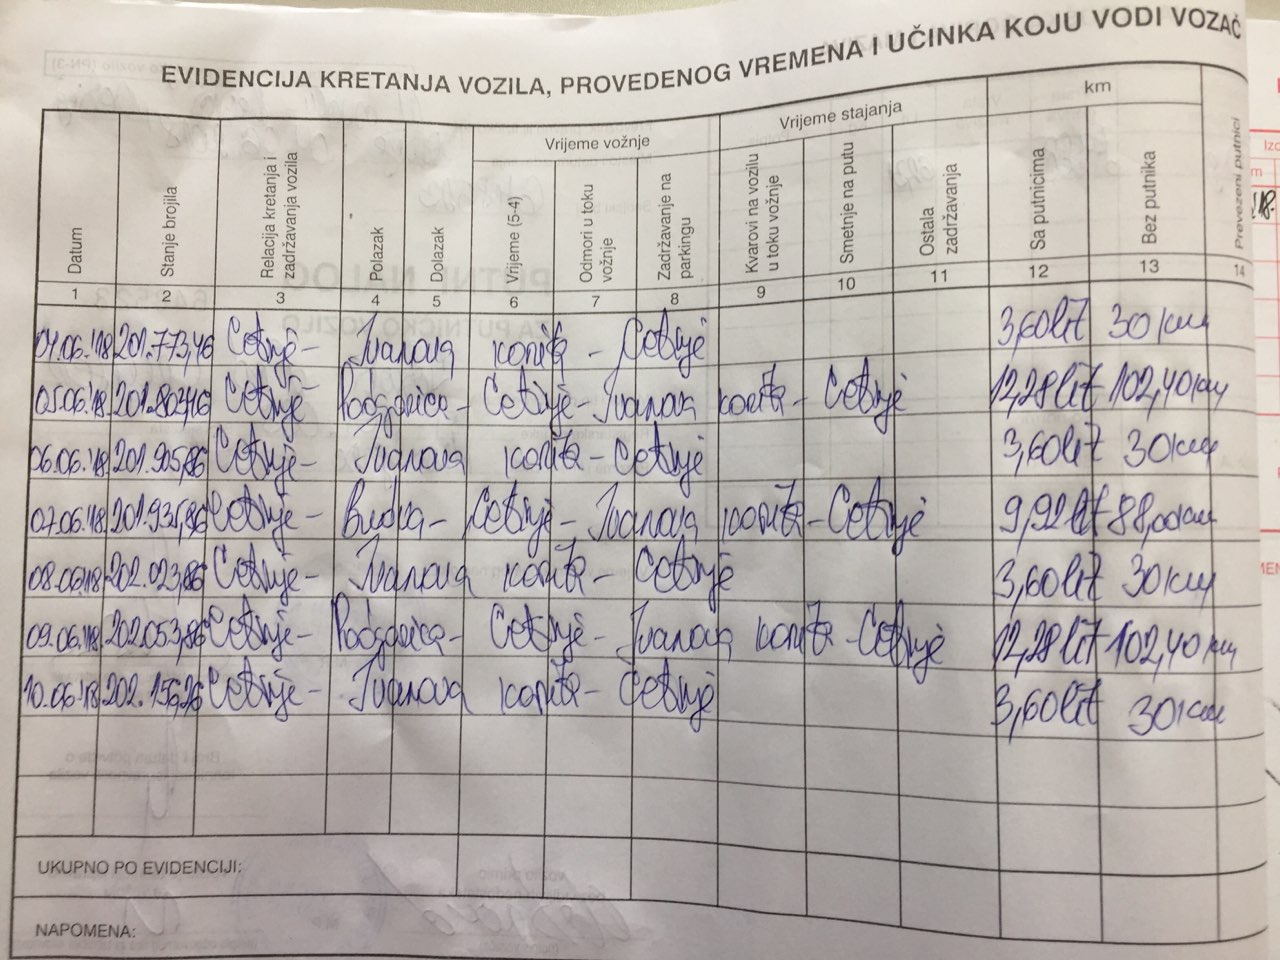 EVIDENCIJA KRETANJA VOZILA, PROVEDENOG VREMENA I UČINKA KOJU VODI VOZAČ
Datum Stanje brojila Relacija kretanja i zadržavanja vozila Polazak Dolazak Vrijeme vožnje Vrijeme (5-4) Odmori u toku vožnje Zadržavanje na parkingu Vrijeme stajanja Kvarovi na vozilu u toku vožnje Smetnje na putu Ostala zadržavanja km Sa putnicima Bez putnika Prevezeni putnici
1 2 3 4 5 6 7 8 9 10 11 12 13 14
04.06.'18 201.773,46 Cetinje - Ivanova korita - Cetinje 3,60lit 30 km
05.06.'18 201.803,46 Cetinje Podgorica - Cetinje - Ivanova korita - Cetinje 12,28lit 102,40 km
06.06.'18 201.905,86 Cetinje - Ivanova korita - Cetinje 3,60lit 30km
07.06.'18 201.935,86 Cetinje - Budva - Cetinje - Ivanova korita - Cetinje 9,92lit 88,00km
08.06.'18 202.023,86 Cetinje - Ivanova korita - Cetinje 3,60lit 30km
09.06.'18 202.053,86 Cetinje - Podgorica - Cetinje - Ivanova korita - Cetinje 12,28lit 102,40 km
10.06.'18 202.156,26 Cetinje - Ivanova korita - Cetinje 3,60lit 30km
UKUPNO PO EVIDENCIJI:
NAPOMENA: